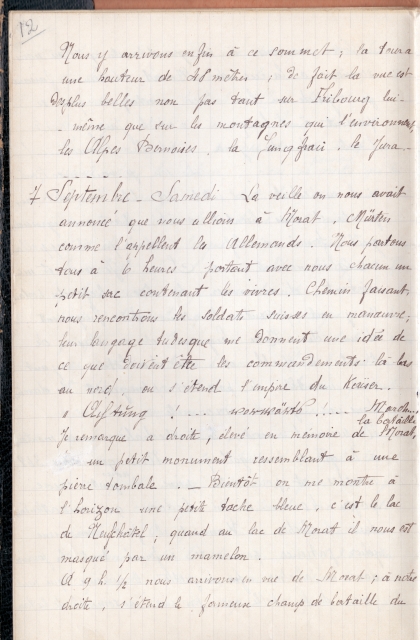 12
Nous y arrivons enfin à ce sommet ; la tour a
une hauteur de 18 mètres ; de fait la vue est
des plus belles non pas tant sur Fribourg lui-
-même que sur les montagnes qui l'environnent
les Alpes Bernoises, la Jungfrau, le Jura -
7 Septembre - Samedi La veille on nous avait
annoncé que nous allions à Morat,
comme l'appellent les Allemands. Nous partons
tous à 6 heures portant avec nous chacun un
petit sac contenant les vivres. Chemin faisant
nous rencontrons les soldats suisses en manœuvre,
leur langage tudesque me donnent une idée de
ce que doivent être les commandements là bas
au nord, ou s'étend l'empire du Keiser.
« Achtung ! ... ! ....
Je remarque a droite, élevé en mémoire de la bataille de Morat,
un petit monument ressemblant à une
pière tombale. _ Bientôt on me montre à
l'horizon une petite tache bleue, c'est le lac
de Neufchâtel, quand au lac de Morat il nous est
masqué par un mamelon.
A 9 h. 1/2 nous arrivons en vue de Morat ; à notre
droite, s'étend le fameux champ de bataille du